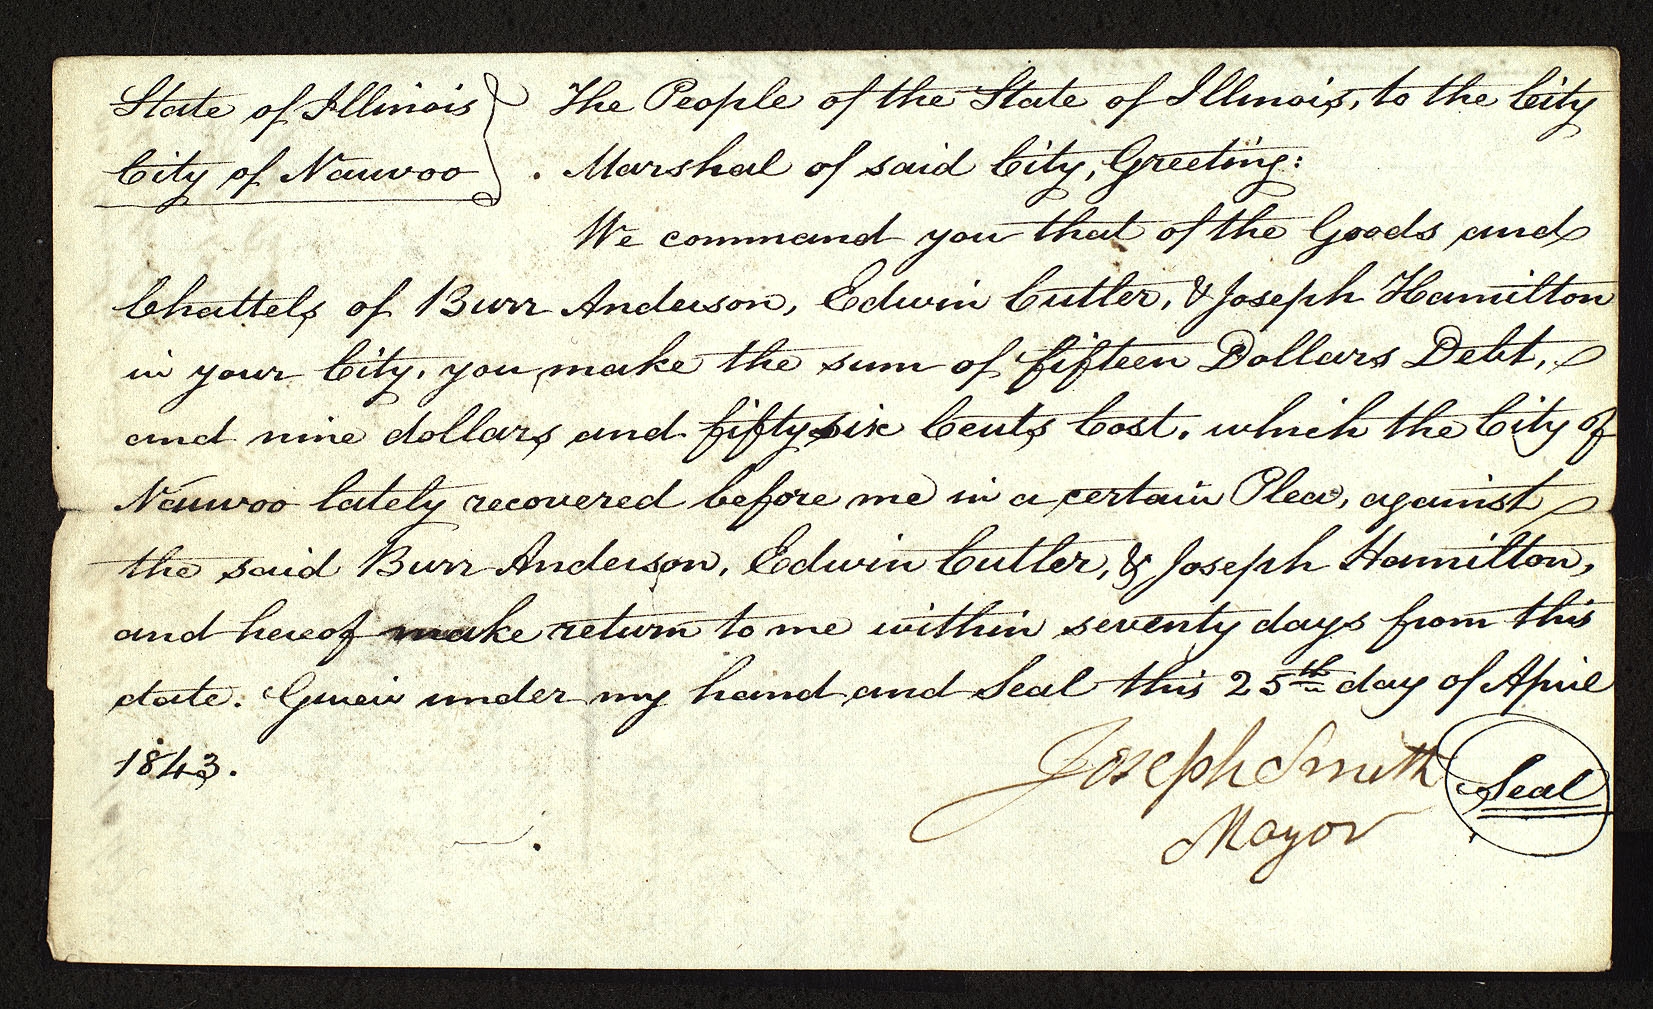 State of Illinois } The People of the State of Illinois, to the City
City of Nauvoo } . Marshal of said City, Greeting:
We command you that of the Goods and
Chattels of Burr Anderson, Edwin Cutler, & Joseph Hamilton
in your City, you make the sum of fifteen Dollars Debt,
and nine dollars and fifty six Cents Cost, which the City of
Nauvoo lately recovered before me in a certain Plea, against
the said Burr Anderson, Edwin Cutler, & Joseph Hamilton,
and hereof make return to me within seventy days from this
date. Given under my hand and Seal this 25th day of April
1843.
Joseph Smith Seal
Mayor